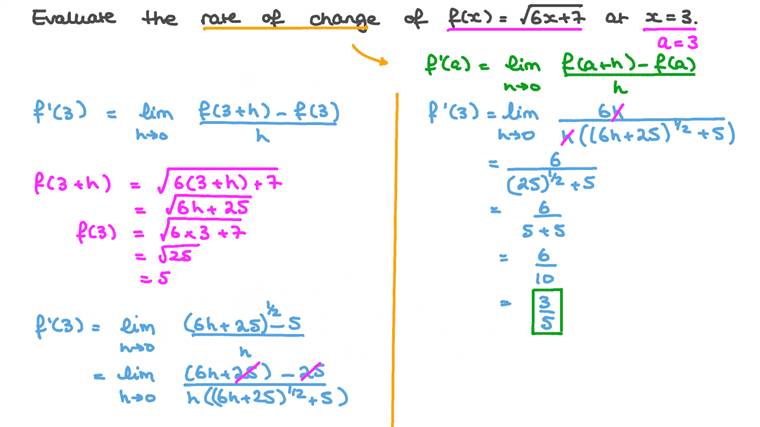 Evaluate the rate of change of f(x) = √(6x+7) at x = 3.
a = 3
f'(a) = lim h→0 (f(a+h) − f(a))/h
f'(3) = lim h→0 (f(3+h) − f(3))/h
f(3+h) = √(6(3+h)+7)
= √(6h+25)
f(3) = √(6×3+7)
= √25
= 5
f'(3) = lim h→0 ((6h+25)^(1/2) − 5)/h
= lim h→0 ((6h+25) − 25)/(h((6h+25)^(1/2) + 5))
f'(3) = lim h→0 6h/(h((6h+25)^(1/2) + 5))
= 6/((25)^(1/2) + 5)
= 6/(5+5)
= 6/10
= 3/5